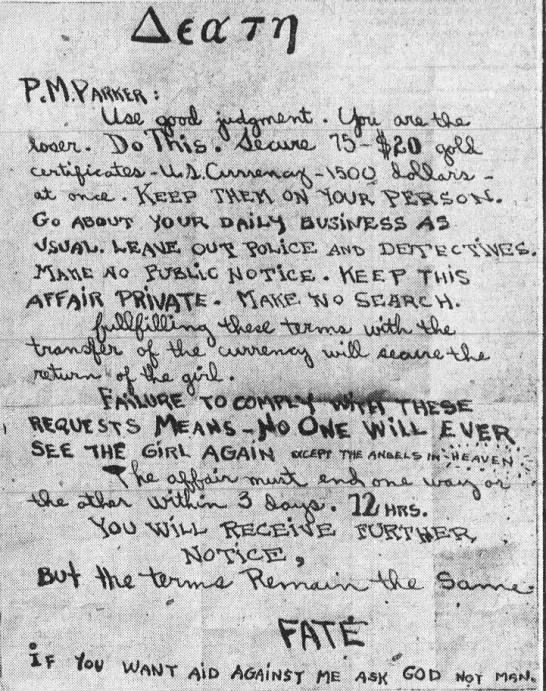 Δεατη
P.M. PARKER:
Use good judgment. You are the
loser. Do This. Secure 75-$20 gold
certificates-U.S. Currency-1500 dollars-
at once. KEEP THEM ON YOUR PERSON.
GO ABOUT YOUR DAILY BUSINESS AS
USUAL. LEAVE OUT POLICE AND DETECTIVES.
MAKE NO PUBLIC NOTICE. KEEP THIS
AFFAIR PRIVATE. MAKE NO SEARCH.
fullfilling these terms with the
transfer of the currency will secure the
return of the girl.
FAILURE TO COMPLY WITH THESE
REQUESTS MEANS-NO ONE WILL EVER
SEE THE GIRL AGAIN EXCEPT THE ANGELS IN HEAVEN
The affair must end one way or
the other within 3 days. 72 HRS.
YOU WILL RECEIVE FURTHER
NOTICE,
But the terms Remain the Same
FATE
IF YOU WANT AID AGAINST ME ASK GOD NOT MAN.